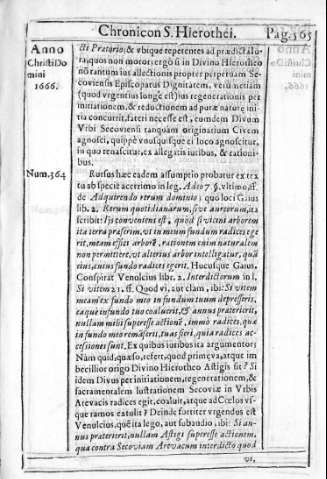 Chronicon S. Hierothei.
Pag.365
Anno
ChristiDo
mini
1666.
cti Pratorio; & vbique repetentes ad prædicta lo-
ra, quos non motor: ergò si in Divino Hierotheo
nō tantum ius allectionis propter perpetuam Se-
coviensis Episcopatus Dignitatem, verū etiam
(quod vrgentius longè est) ius regenerationis per
initiationem, & reductionem ad puræ naturæ initia
concurrit, fateri necesse est, eumdem Divum
Vrbi Secoviensi tanquam originarium Civem
agnosci, quippè vnusquisque ei loco agnoscitur,
in quo renascitur, ex allegatis iuribus, & rationi-
bus.
Num.364
Rursus hæc eadem assumptio probatur ex tex
tu ab specie acerrimo in leg. Adeo 7. §. vltimo, ff.
de Adquirendo rerum dominio; quò loci Gaius
lib. 2. Rerum quotidianarum, sive aureorum, ita
scribit: Ijs conveniens est, quòd si vicini arborem
ita terra præserim, vt in meum fundum radices ege
rit, meam effici arborē, rationem enim naturalem
non permittere, vt alterius arbor intelligatur, quā
eius, cuius fundo radices egerit. Hucusque Gaius.
Conspirat Venulcius libr. 2. Interdictorum in l.
Si vitem 21. ff. Quod vi, aut clam, ibi: Si vitem
meam ex fundo meo in fundum tuum depresseris,
eaque in fundo tuo coaluerit, & annus præterierit,
nullam mihi superesse actionē, immò radices, quæ
in fundo meo remāserit, tuas fieri, quia radices ac-
cessiones sunt. Ex quibus iuribus ita argumentor:
Nam quid, quæso, refert, quod primęva, atque im
becillior origo Divino Hierotheo Astigis sit? Si
idem Divus per initiationem, regenerationem, &
sacramentalem lustrationem Secoviæ in Vrbis
Arevacis radices egit, coaluit, atque ad Cœlos vs-
que ramos extulit? Deinde fortiter vrgendus est
Venulcius, quē ita lego, aut subaudio, ibi: Si an-
nus præterierit, nullam Astigi superesse actionem,
qua contra Secoviam Arevacum interdicto quod
vi,